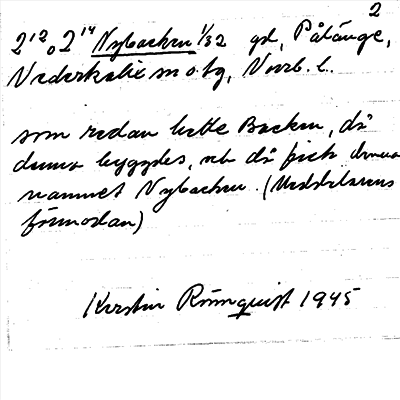 2
2¹² o 2¹⁴ Nybacken 1/32 gd, Pålänge,
Nederkalix sn o. tg, Norrb. l.
som redan hette Backen, då
denna byggdes, och då fick denna
namnet Nybacken. (Meddelarens
förmodan)
Kerstin Rönnquist 1945